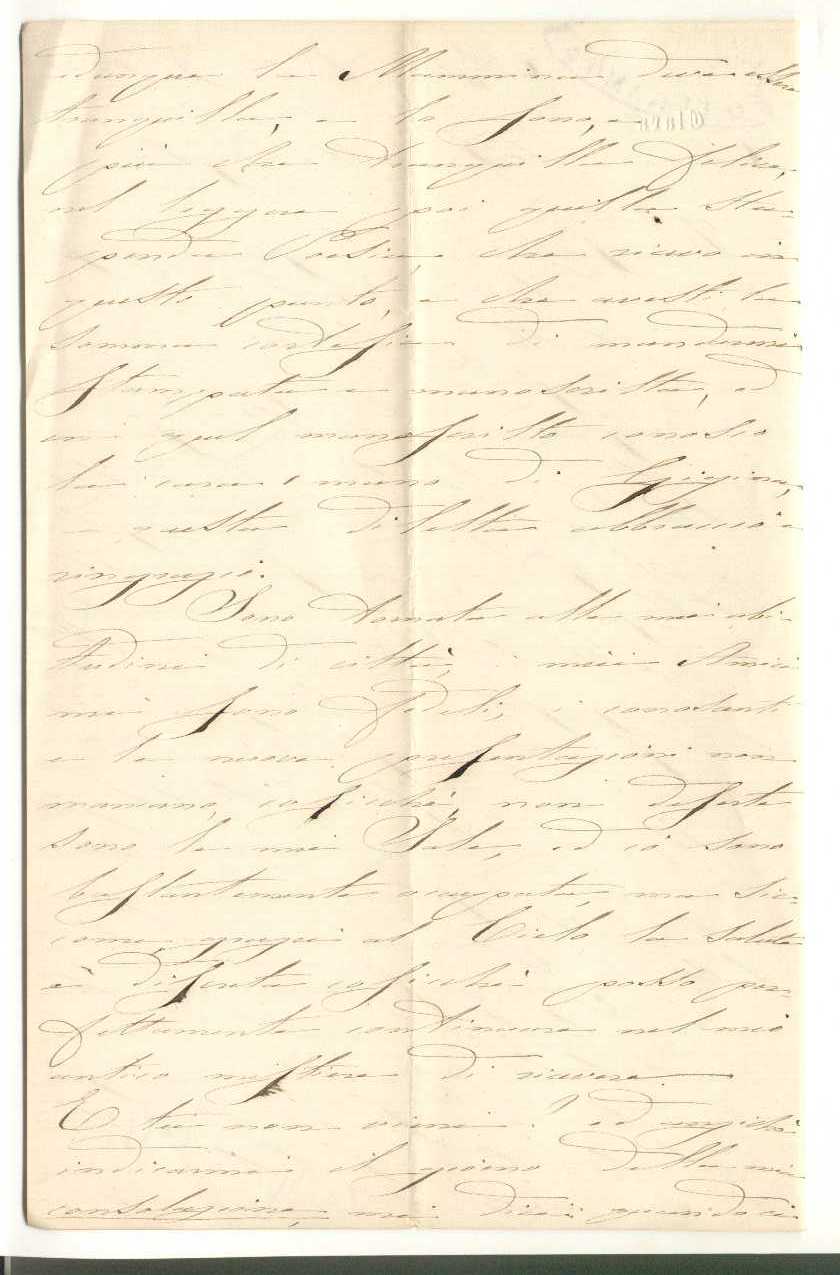 dunque la Mammina deve esser
tranquilla, e lo sono, e
più che tranquilla felice,
nel leggere poi quella stu-
penda Poesia, che ricevo in
questo punto, e che avesti la
somma cortesia di mandarmi
stampata e manoscritta, ed
in quel manoscritto conosco
la cara mano di Gigina,
e questa diletta abbraccio e
ringrazio.
Sono tornata alle mie abi-
tudini di città, i miei Amici
mi sono fedeli, i conoscenti
e le nuove presentazioni non
mancano, cosicchè non deserte
sono le mie Sale, ed io sono
bastantemente occupata, ma sic-
come grazie al Cielo la salute
è discreta cosicchè posso per-
fettamente continuare nel mio
antico mestiere di ricevere —
E tu non vieni? ed
indicarmi il giorno della mia
consolazione, mi dici quando ci